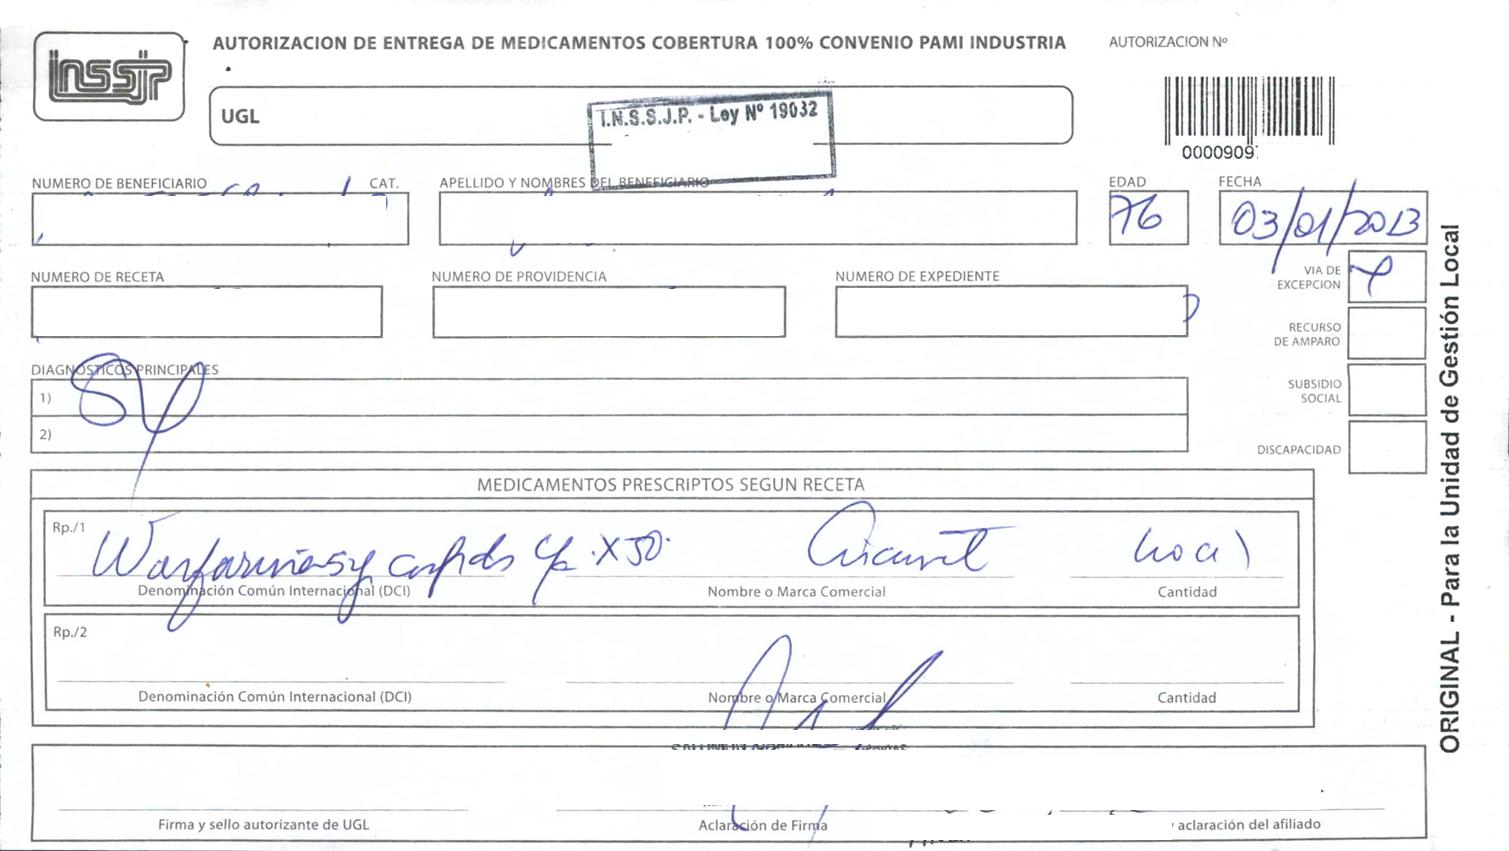 inssjp
AUTORIZACION DE ENTREGA DE MEDICAMENTOS COBERTURA 100% CONVENIO PAMI INDUSTRIA
AUTORIZACION Nº
UGL
I.N.S.S.J.P. - Ley Nº 19032
0000909
NUMERO DE BENEFICIARIO CAT. APELLIDO Y NOMBRES DEL BENEFICIARIO EDAD FECHA
76 03/01/2013
NUMERO DE RECETA NUMERO DE PROVIDENCIA NUMERO DE EXPEDIENTE
VIA DE
EXCEPCION
RECURSO
DE AMPARO
DIAGNOSTICOS PRINCIPALES
1)
SUBSIDIO
SOCIAL
2)
DISCAPACIDAD
MEDICAMENTOS PRESCRIPTOS SEGUN RECETA
Rp./1
X 50
Denominación Común Internacional (DCI) Nombre o Marca Comercial Cantidad
Rp./2
Denominación Común Internacional (DCI) Nombre o Marca Comercial Cantidad
Firma y sello autorizante de UGL Aclaración de Firma aclaración del afiliado
ORIGINAL - Para la Unidad de Gestión Local